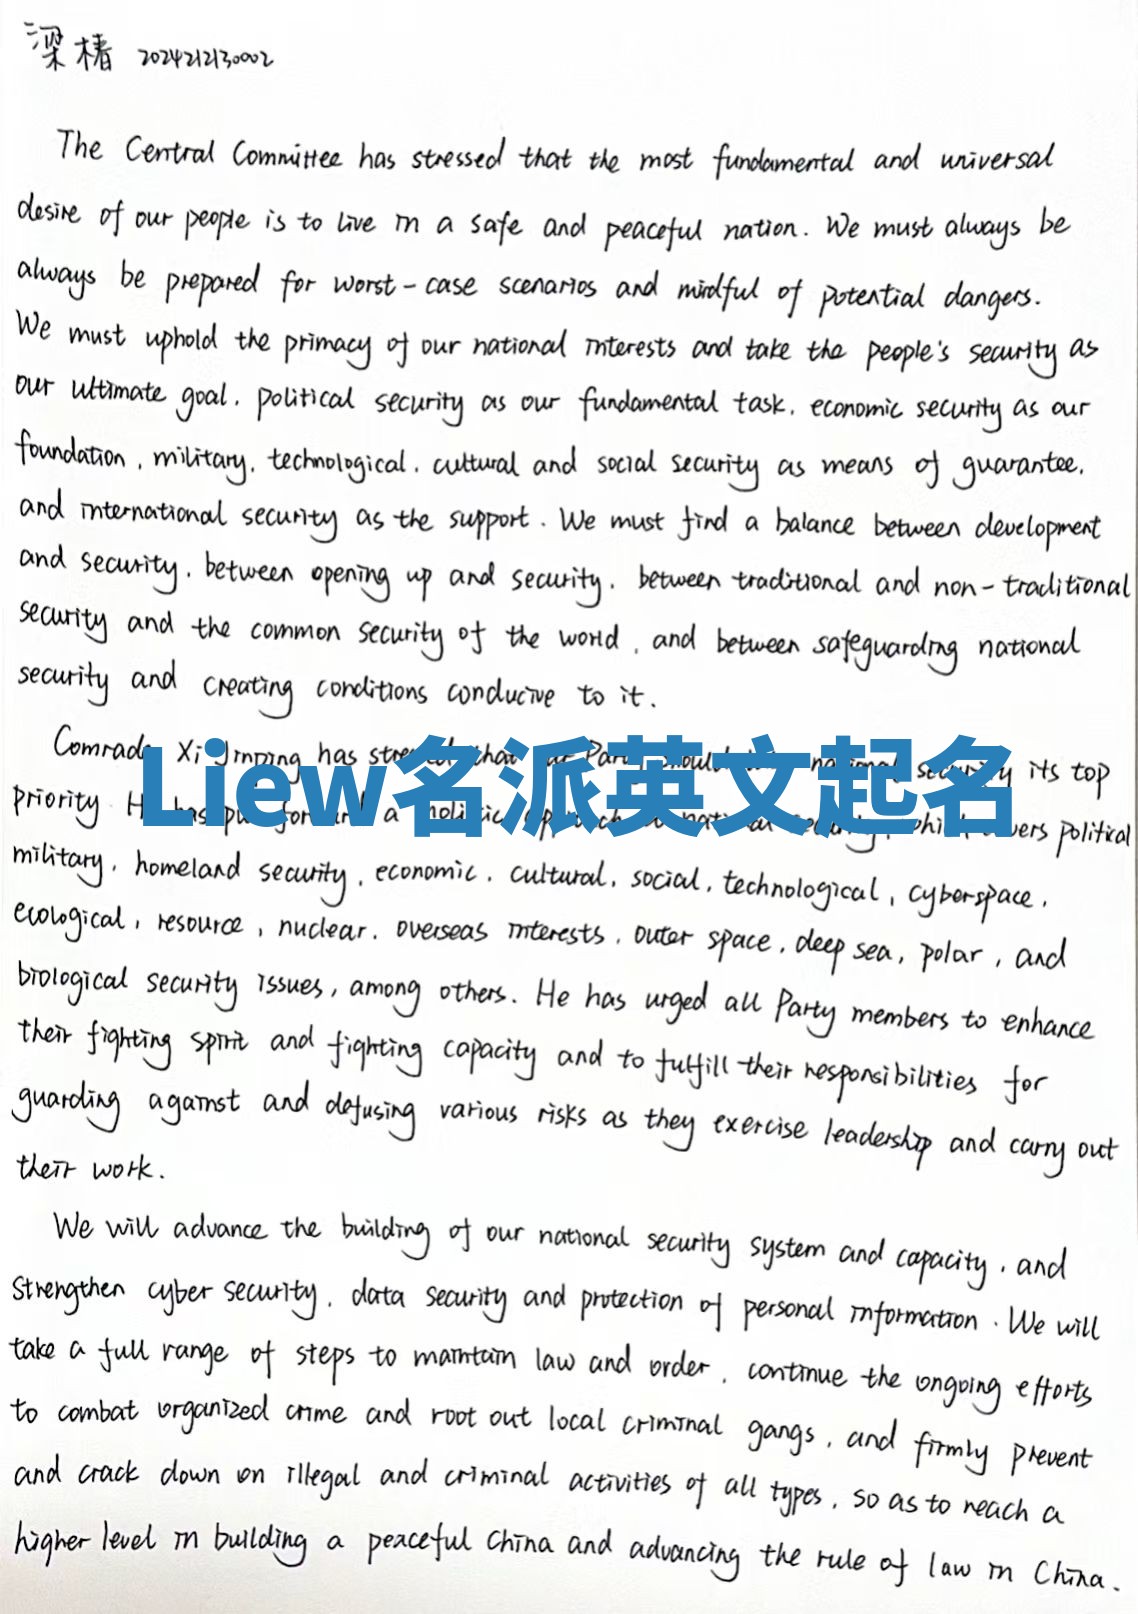 梁椿 2024212130002
The Central Committee has stressed that the most fundamental and universal
desire of our people is to live in a safe and peaceful nation. We must always be
always be prepared for worst-case scenarios and mindful of potential dangers.
We must uphold the primacy of our national interests and take the people's security as
our ultimate goal, political security as our fundamental task, economic security as our
foundation, military, technological, cultural and social security as means of guarantee,
and international security as the support. We must find a balance between development
and security, between opening up and security, between traditional and non-traditional
security and the common security of the world, and between safeguarding national
security and creating conditions conducive to it.
Comrade Xi Jinping has that national security its top
Liew名派英文起名
priority a political
military, homeland security, economic, cultural, social, technological, cyberspace,
ecological, resource, nuclear, overseas interests, outer space, deep sea, polar, and
biological security issues, among others. He has urged all Party members to enhance
their fighting spirit and fighting capacity and to fulfill their responsibilities for
guarding against and defusing various risks as they exercise leadership and carry out
their work.
We will advance the building of our national security system and capacity, and
strengthen cyber security, data security and protection of personal information. We will
take a full range of steps to maintain law and order, continue the ongoing efforts
to combat organized crime and root out local criminal gangs, and firmly prevent
and crack down on illegal and criminal activities of all types, so as to reach a
higher level in building a peaceful China and advancing the rule of law in China.